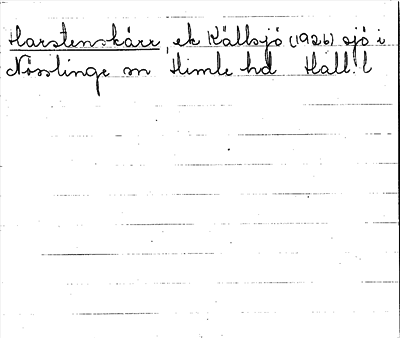 Harstenskärr, ek Källsjö (1926) sjö i
Nösslinge sn Himle hd Hall. l